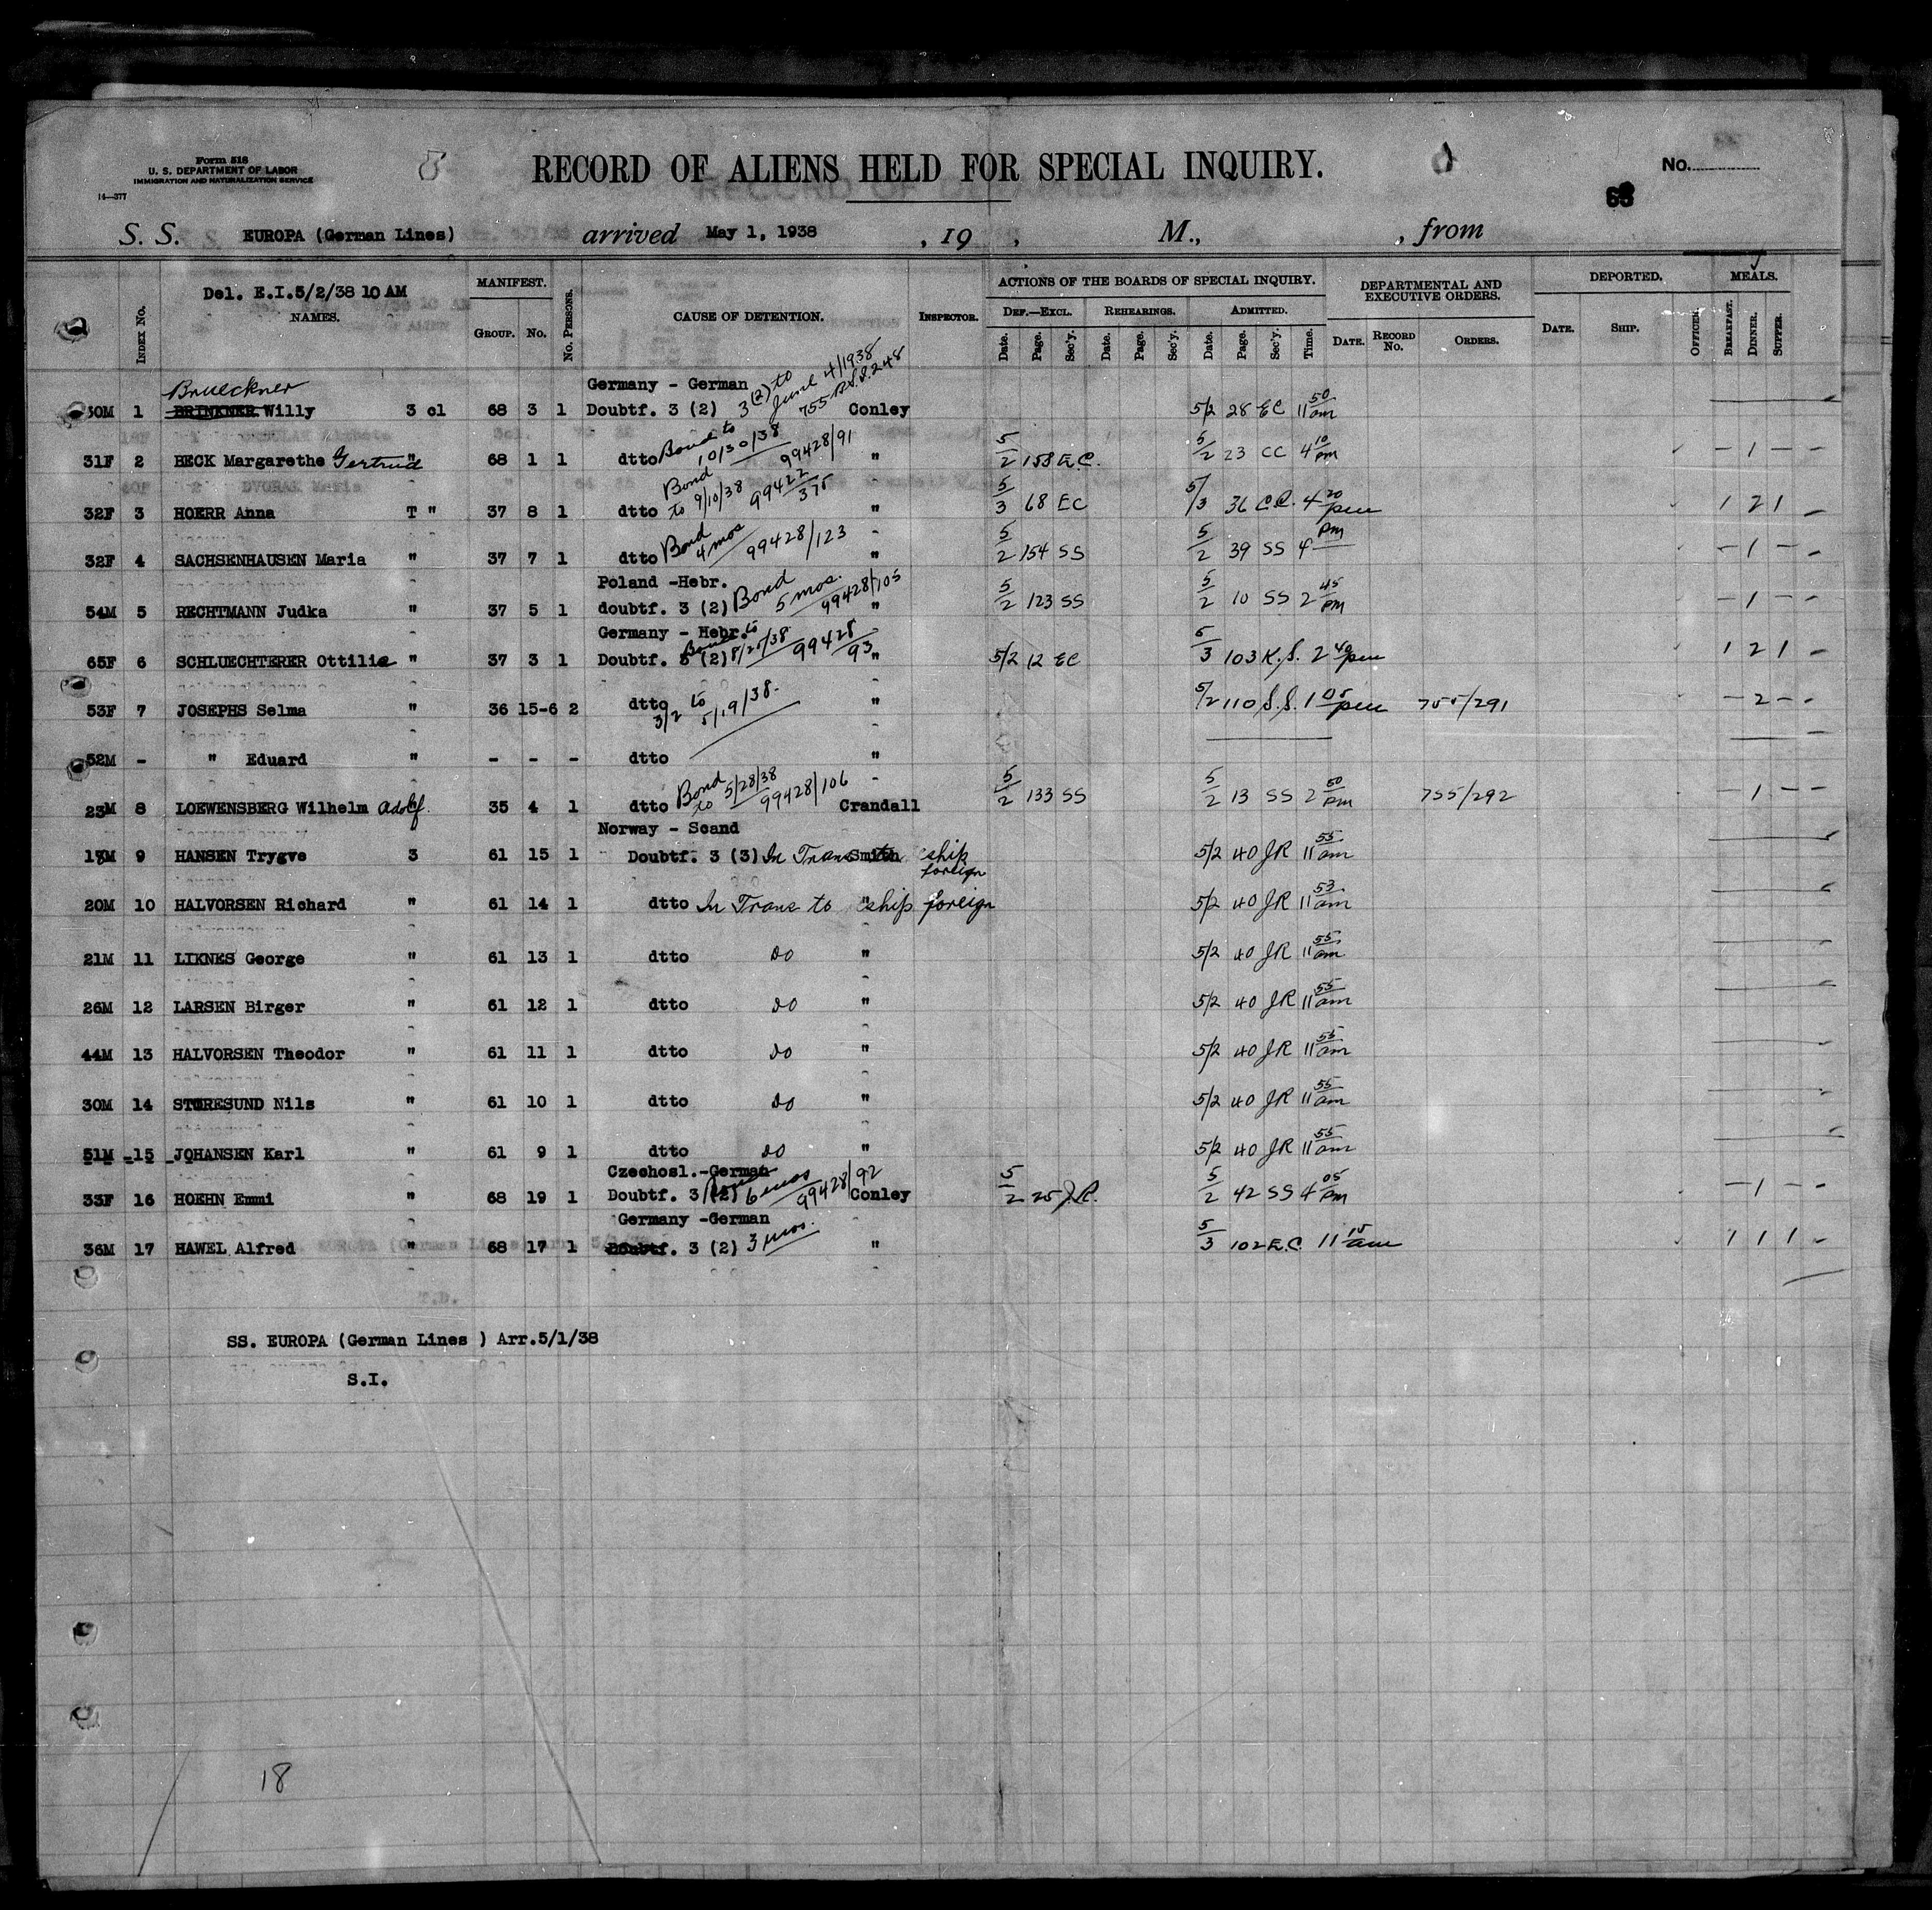 Form 518
U. S. DEPARTMENT OF LABOR
IMMIGRATION AND NATURALIZATION SERVICE
14—377
RECORD OF ALIENS HELD FOR SPECIAL INQUIRY.
No.
S. S. EUROPA (German Lines) arrived May 1, 1938 , 19 , M., , from
Del. E.I.5/2/38 10 AM
INDEX NO. NAMES. MANIFEST. GROUP. NO. NO. PERSONS. CAUSE OF DETENTION. INSPECTOR. ACTIONS OF THE BOARDS OF SPECIAL INQUIRY. DEPARTMENTAL AND EXECUTIVE ORDERS. DEPORTED. MEALS.
DEF.—EXCL. REHEARINGS. ADMITTED.
Date. Page. Sec'y. Date. Page. Sec'y. Date. Page. Sec'y. Time. DATE. RECORD NO. ORDERS. DATE. SHIP. OFFICER. BREAKFAST. DINNER. SUPPER.
Brueckner Germany - German 3(2) to June 4/1938
30M 1 BRINKNER Willy 3 cl 68 3 1 Doubtf. 3 (2) Conley 5/2 28 EC 11 50 am
31F 2 BECK Margarethe Gertrud " 68 1 1 dtto Bond to 10/30/38 99428/91 " 5/2 158 E.C. 5/2 23 CC 4 10 pm - 1 - -
32F 3 HOERR Anna T " 37 8 1 dtto Bond to 9/10/38 99422/375 " 5/3 68 EC 5/3 36 C.C. 4 20 pm 1 2 1 -
32F 4 SACHSENHAUSEN Maria " 37 7 1 dtto Bond 4 mos 99428/123 " 5/2 154 SS 5/2 39 SS 4 pm - 1 - -
Poland -Hebr.
54M 5 RECHTMANN Judka " 37 5 1 doubtf. 3 (2) Bond 5 mos. 99428/105 " 5/2 123 SS 5/2 10 SS 2 45 pm - 1 - -
Germany - Hebr.
65F 6 SCHLUECHTERER Ottilie " 37 3 1 Doubtf. 3 (2) Bond to 8/25/38 99428/93 " 5/2 12 EC 5/3 103 K.S. 2 40 pm 1 2 1 -
53F 7 JOSEPHS Selma " 36 15-6 2 dtto 3/2 to 5/19/38. " 5/2 110 S.S. 1 05 pm 755/291 - 2 - -
52M - " Eduard " - - - dtto "
23M 8 LOEWENSBERG Wilhelm Adolf. " 35 4 1 dtto Bond to 5/28/38 99428/106 Crandall 5/2 133 SS 5/2 13 SS 2 50 pm 755/292 - 1 - -
Norway - Scand
18M 9 HANSEN Trygve 3 61 15 1 Doubtf. 3 (3) In Trans to Smith ship foreign 5/2 40 JR 11 55 am
20M 10 HALVORSEN Richard " 61 14 1 dtto In Trans to " ship foreign 5/2 40 JR 11 53 am
21M 11 LIKNES George " 61 13 1 dtto Do " 5/2 40 JR 11 55 am
26M 12 LARSEN Birger " 61 12 1 dtto Do " 5/2 40 JR 11 55 am
44M 13 HALVORSEN Theodor " 61 11 1 dtto Do " 5/2 40 JR 11 55 am
30M 14 STORESUND Nils " 61 10 1 dtto Do " 5/2 40 JR 11 55 am
51M 15 JOHANSEN Karl " 61 9 1 dtto Do " 5/2 40 JR 11 55 am
Czechosl.-German
33F 16 HOEHN Emmi " 68 19 1 Doubtf. 3 (2) Bond 6 mos 99428/92 Conley 5/2 25 J.R. 5/2 42 SS 4 05 pm - 1 - -
Germany -German
36M 17 HAWEL Alfred " 68 17 1 Doubtf. 3 (2) 3 mos. " 5/3 102 E.C. 11 15 am 1 1 1 -
SS. EUROPA (German Lines ) Arr.5/1/38
S.I.
18